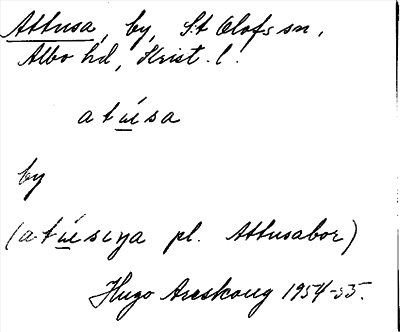 Attusa, by, S:t Olofs sn,
Albo hd, Krist. l.
atúsa
by
(atúsiŋa pl. Attusabor)
Hugo Areskoug 1954-55.